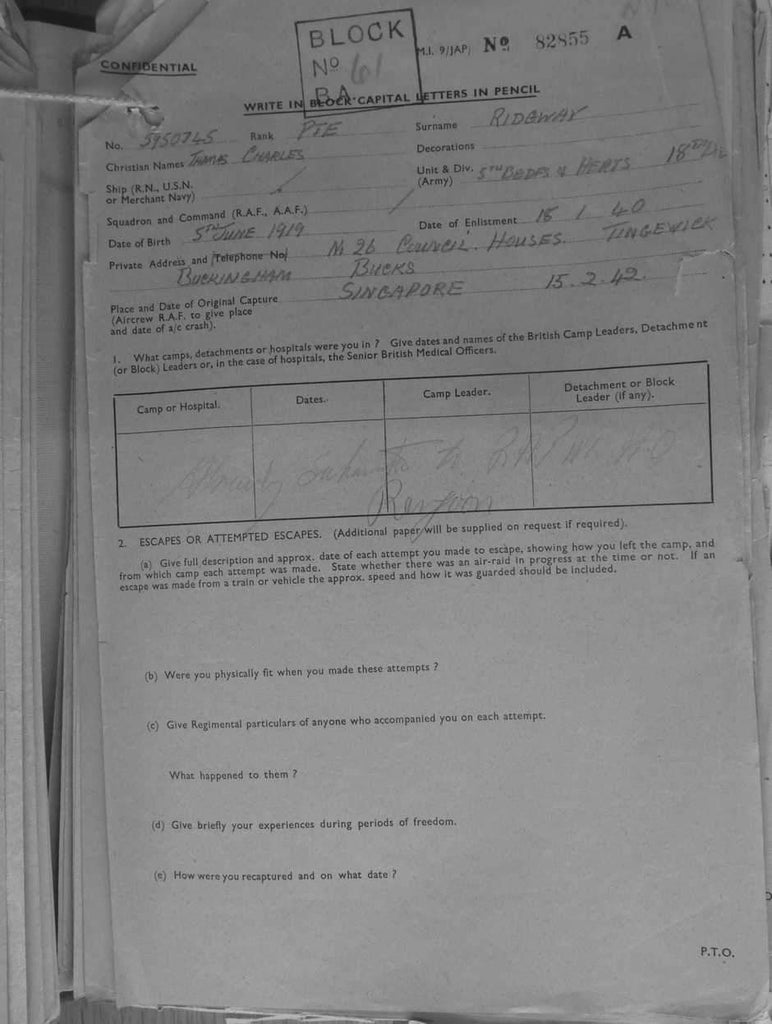 BLOCK
Nº 61
BA
M.I. 9/JAP/ Nº 82855 A
CONFIDENTIAL
WRITE IN BLOCK CAPITAL LETTERS IN PENCIL
No. 5950745 Rank PTE Surname RIDGWAY
Christian Names THOMAS CHARLES Decorations
Ship (R.N., U.S.N. or Merchant Navy)
Unit & Div. (Army) 5TH BEDFS & HERTS 18TH DIV
Squadron and Command (R.A.F., A.A.F.)
Date of Birth 5TH JUNE 1919 Date of Enlistment 15 1 40
Private Address and Telephone No. No 26 COUNCIL HOUSES. TINGEWICK
BUCKINGHAM BUCKS
Place and Date of Original Capture SINGAPORE 15.2.42
(Aircrew R.A.F. to give place
and date of a/c crash).
1. What camps, detachments or hospitals were you in ? Give dates and names of the British Camp Leaders, Detachment
(or Block) Leaders or, in the case of hospitals, the Senior British Medical Officers.
Camp or Hospital. Dates. Camp Leader. Detachment or Block Leader (if any).
Already Submitted to
Rangoon
2. ESCAPES OR ATTEMPTED ESCAPES. (Additional paper will be supplied on request if required).
(a) Give full description and approx. date of each attempt you made to escape, showing how you left the camp, and
from which camp each attempt was made. State whether there was an air-raid in progress at the time or not. If an
escape was made from a train or vehicle the approx. speed and how it was guarded should be included.
(b) Were you physically fit when you made these attempts ?
(c) Give Regimental particulars of anyone who accompanied you on each attempt.
What happened to them ?
(d) Give briefly your experiences during periods of freedom.
(e) How were you recaptured and on what date ?
P.T.O.